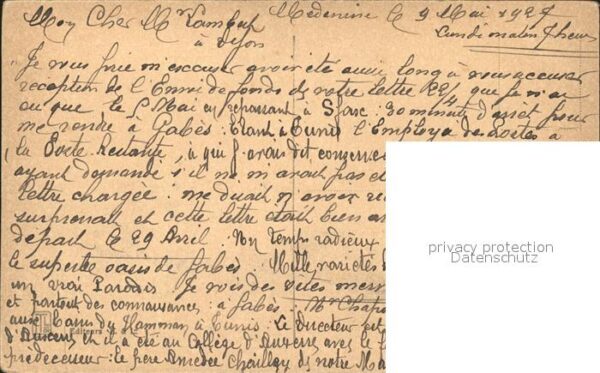 Mon Cher Mr Lambert Medenine le 9 Mai 1927
à Dijon Lundi matin 7 heures
Je vous prie m'excuser avoir été aussi long à vous accuser
réception de l'Envoi de fonds de votre lettre 22/4 que je n'ai
eu que le 5 Mai en repassant à Sfax: 30 minutes d'arrêt pour
me rendre à Gabès. Etant à Tunis l'Employé des Postes à
la Poste Restante, à qui j'avais dit conserver
ayant demandé s'il ne m'avait pas
lettre chargée: me disait n'avoir
surprenait et cette lettre était bien
départ le 29 Avril. Un temps radieux
le superbe oasis de Gabès. Mille variétés
un vrai Paradis Je vois des
et partout des connaissances: à Gabès: Mr
aux Bains du Hammam à Tunis. Le Directeur est
Editeurs
d'Auxerre et il a été au Collège d'Auxerre avec le
prédécesseur: le frère Amédée Chailley de notre
privacy protection
Datenschutz